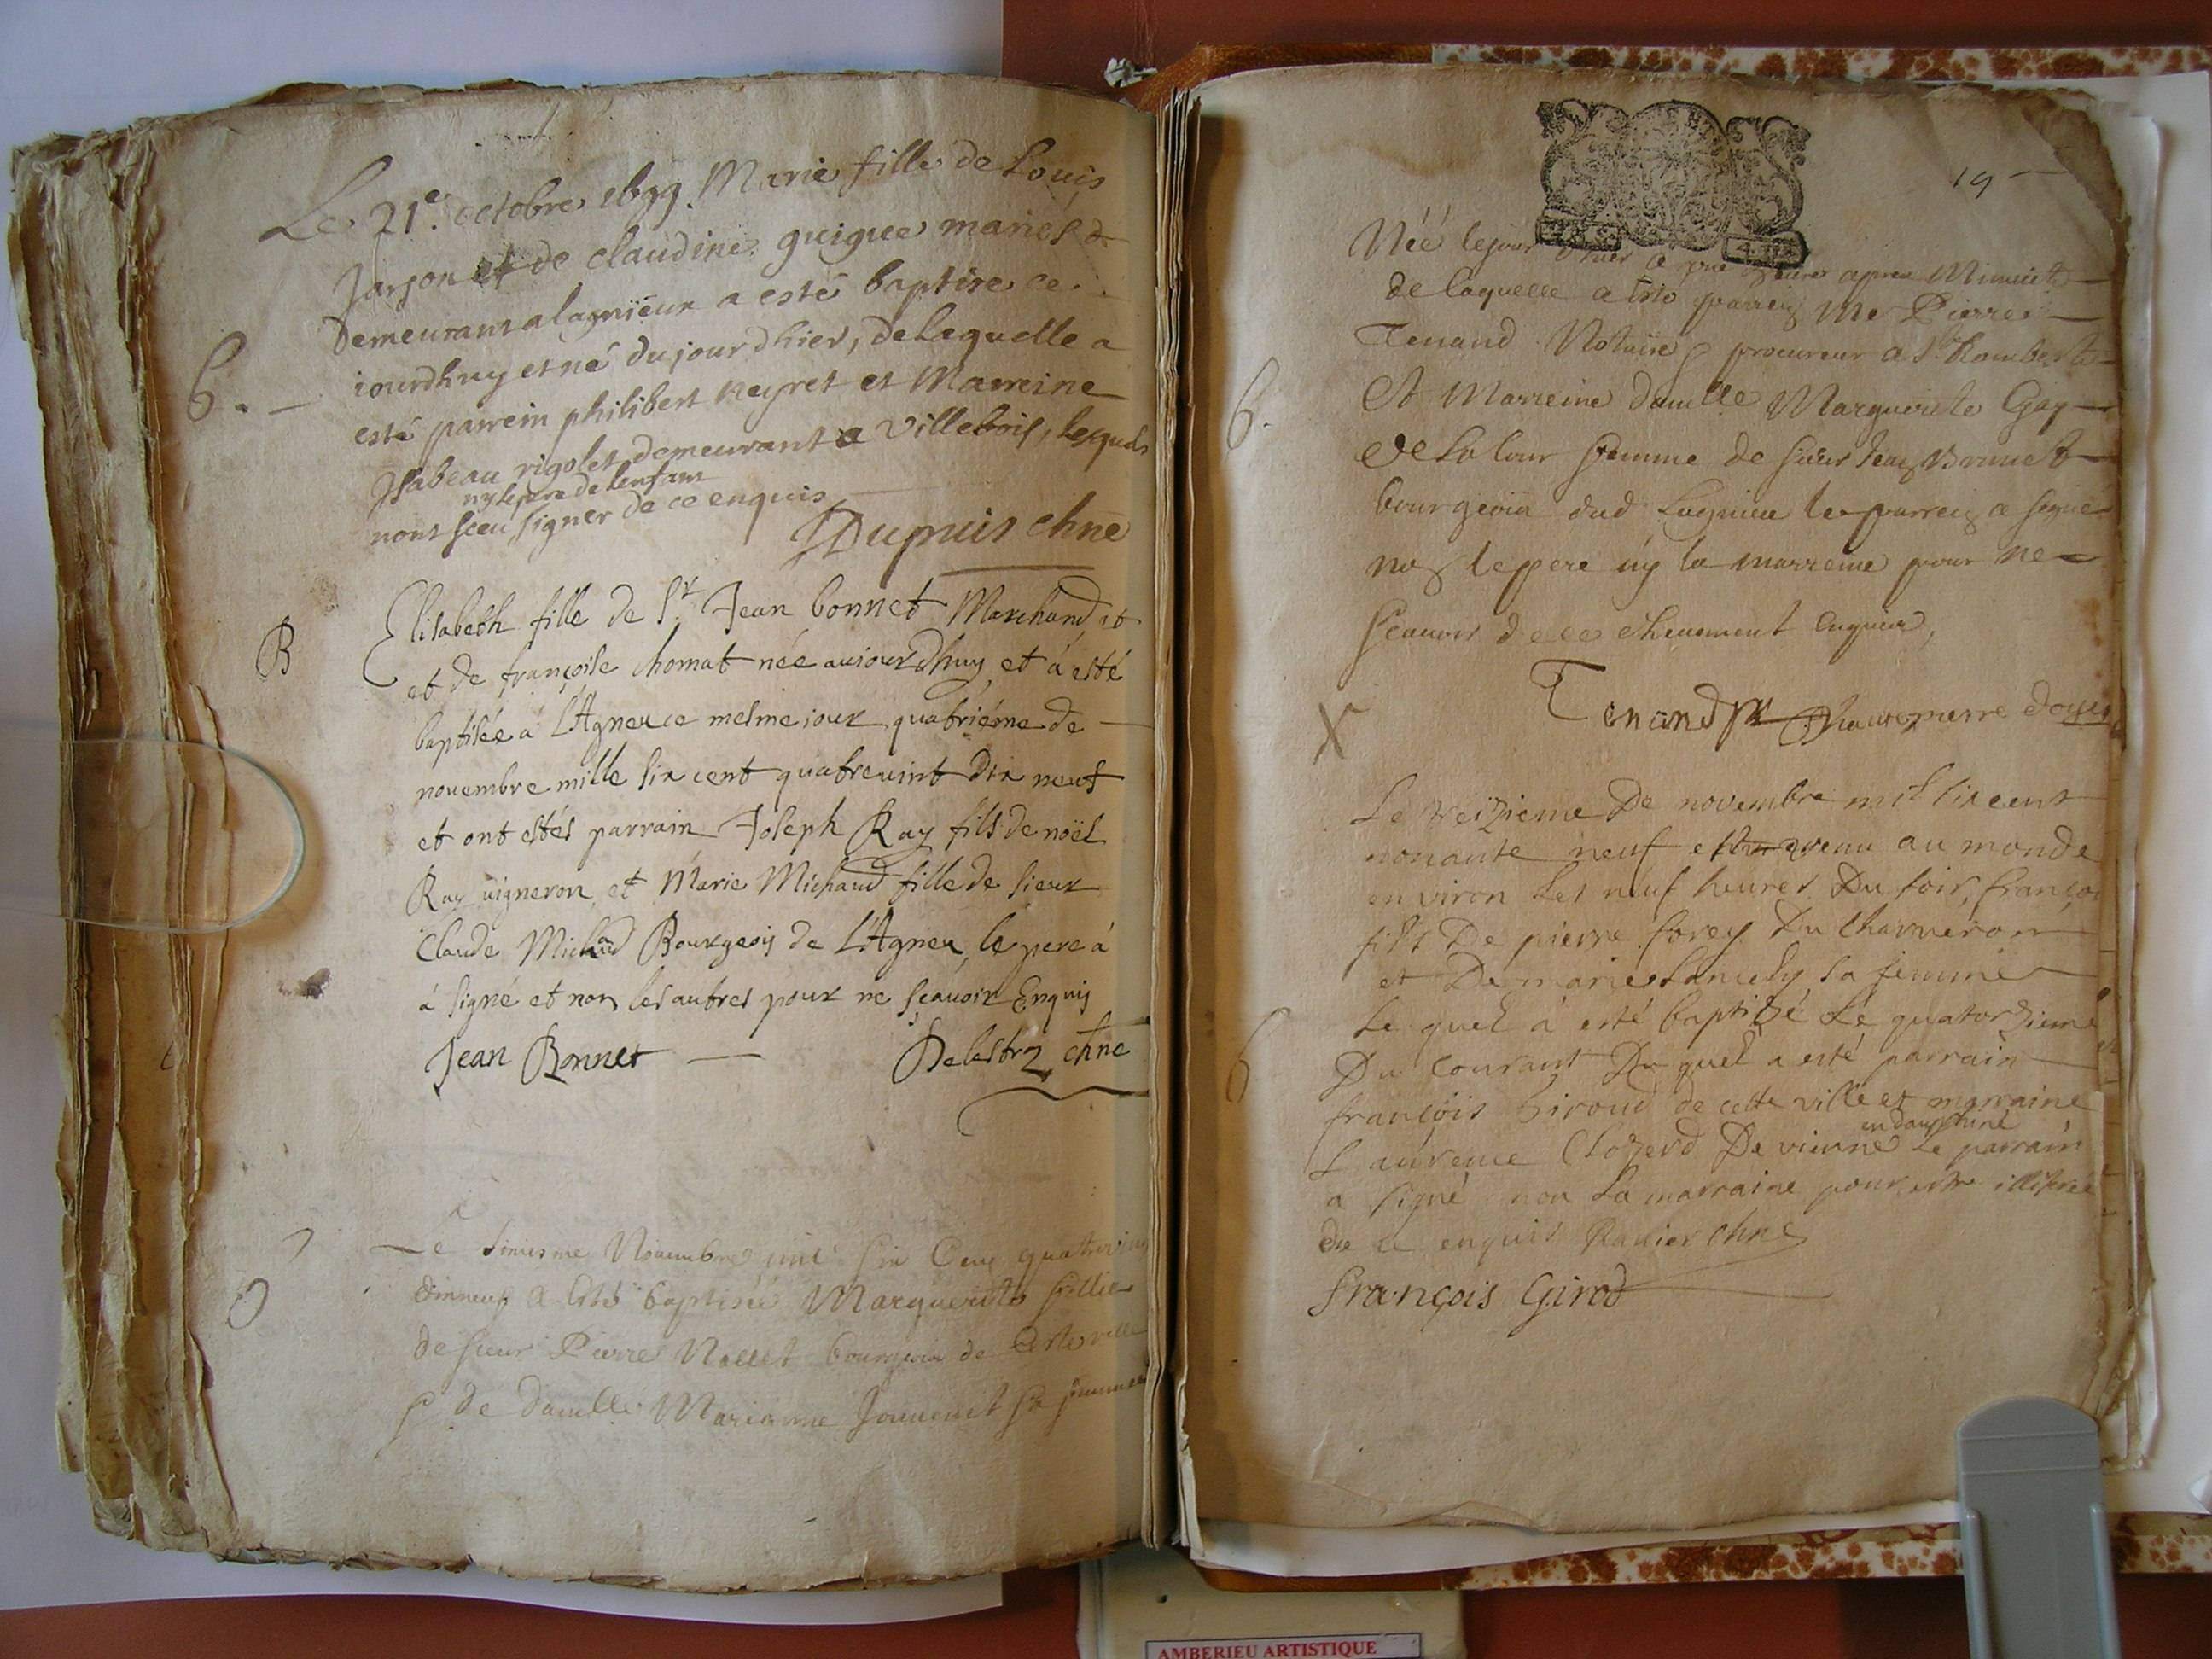 Le 21e. octobre 1699 Marie fille de Louis
Jarson et de claudine guigue mariés &
demeurant a lagnieux a esté baptisee ce
iourdhuy et né du jour dhier, de laquelle a
6. —
esté parrein philibert neyret et Marreine
Isabeau rigolet demeurant a Villebois, lesquels
ny le pere de lenfant
nont sceu signer de ce enquis
Dupuis chne
B
Elisabeth fille de Sr. Jean bonnet Marchand et
et de françoise chomat née auiourdhuy et à esté
baptisée à L'Agneu ce mesme iour quatriéme de —
nouembre mille six cent quatreuint dix neuf
et ont estés parrain Joseph Ray fils de noël
Ray uigneron et Marie Michaud fille de sieur
Claude Michaud Bourgeois de L'Agneu, le pere à
à signé et non les autres pour ne sçauoir Enquis
Jean Bonnet —
chne
Le Nouembre mil six Cens quatrevint
dixneuf a esté baptisée Marguerite fillie
de sieur Pierre Nallet bourgeois de Ceste ville
& de damlle Marianne Jouuenet sa femme
19 —
Néé le jour dhier a une heure apres Minuict —
de laquelle a esté parrein Me Pierre —
Tenand Notaire & procureur a St. Rambert —
6.
Et Marreine damlle Marguerite Gay —
De La Cour femme de sieur Jean Brunet —
bourgeois dud Lagnieu le parrein a signé
non le pere ny la marreine pour ne —
Scauoir de ce enquis,
Tenand
X
Le treizieme De novembre mil six cent
nonante neuf est venu au monde
environ les neuf heures Du soir, françois
fils De pierre forey Du Charveron
et De marie sa femme
Le quel à esté baptizé Le quatorzieme
Du Courant Du quel a esté parrain
6
françois Giroud de cette ville et marraine
en dauphiné
Laurence Clozerd De vienne Le parrain
a signé non La marraine pour estre illitérée
De ce enquis Ravier chne
François Girod
AMBERIEU ARTISTIQUE